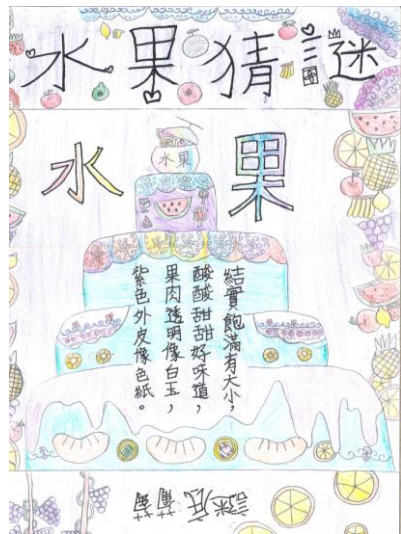 水果猜謎
水果
水果
結實飽滿有大小，
酸酸甜甜好味道，
果肉透明像白玉，
紫色外皮像色紙。
謎底葡萄